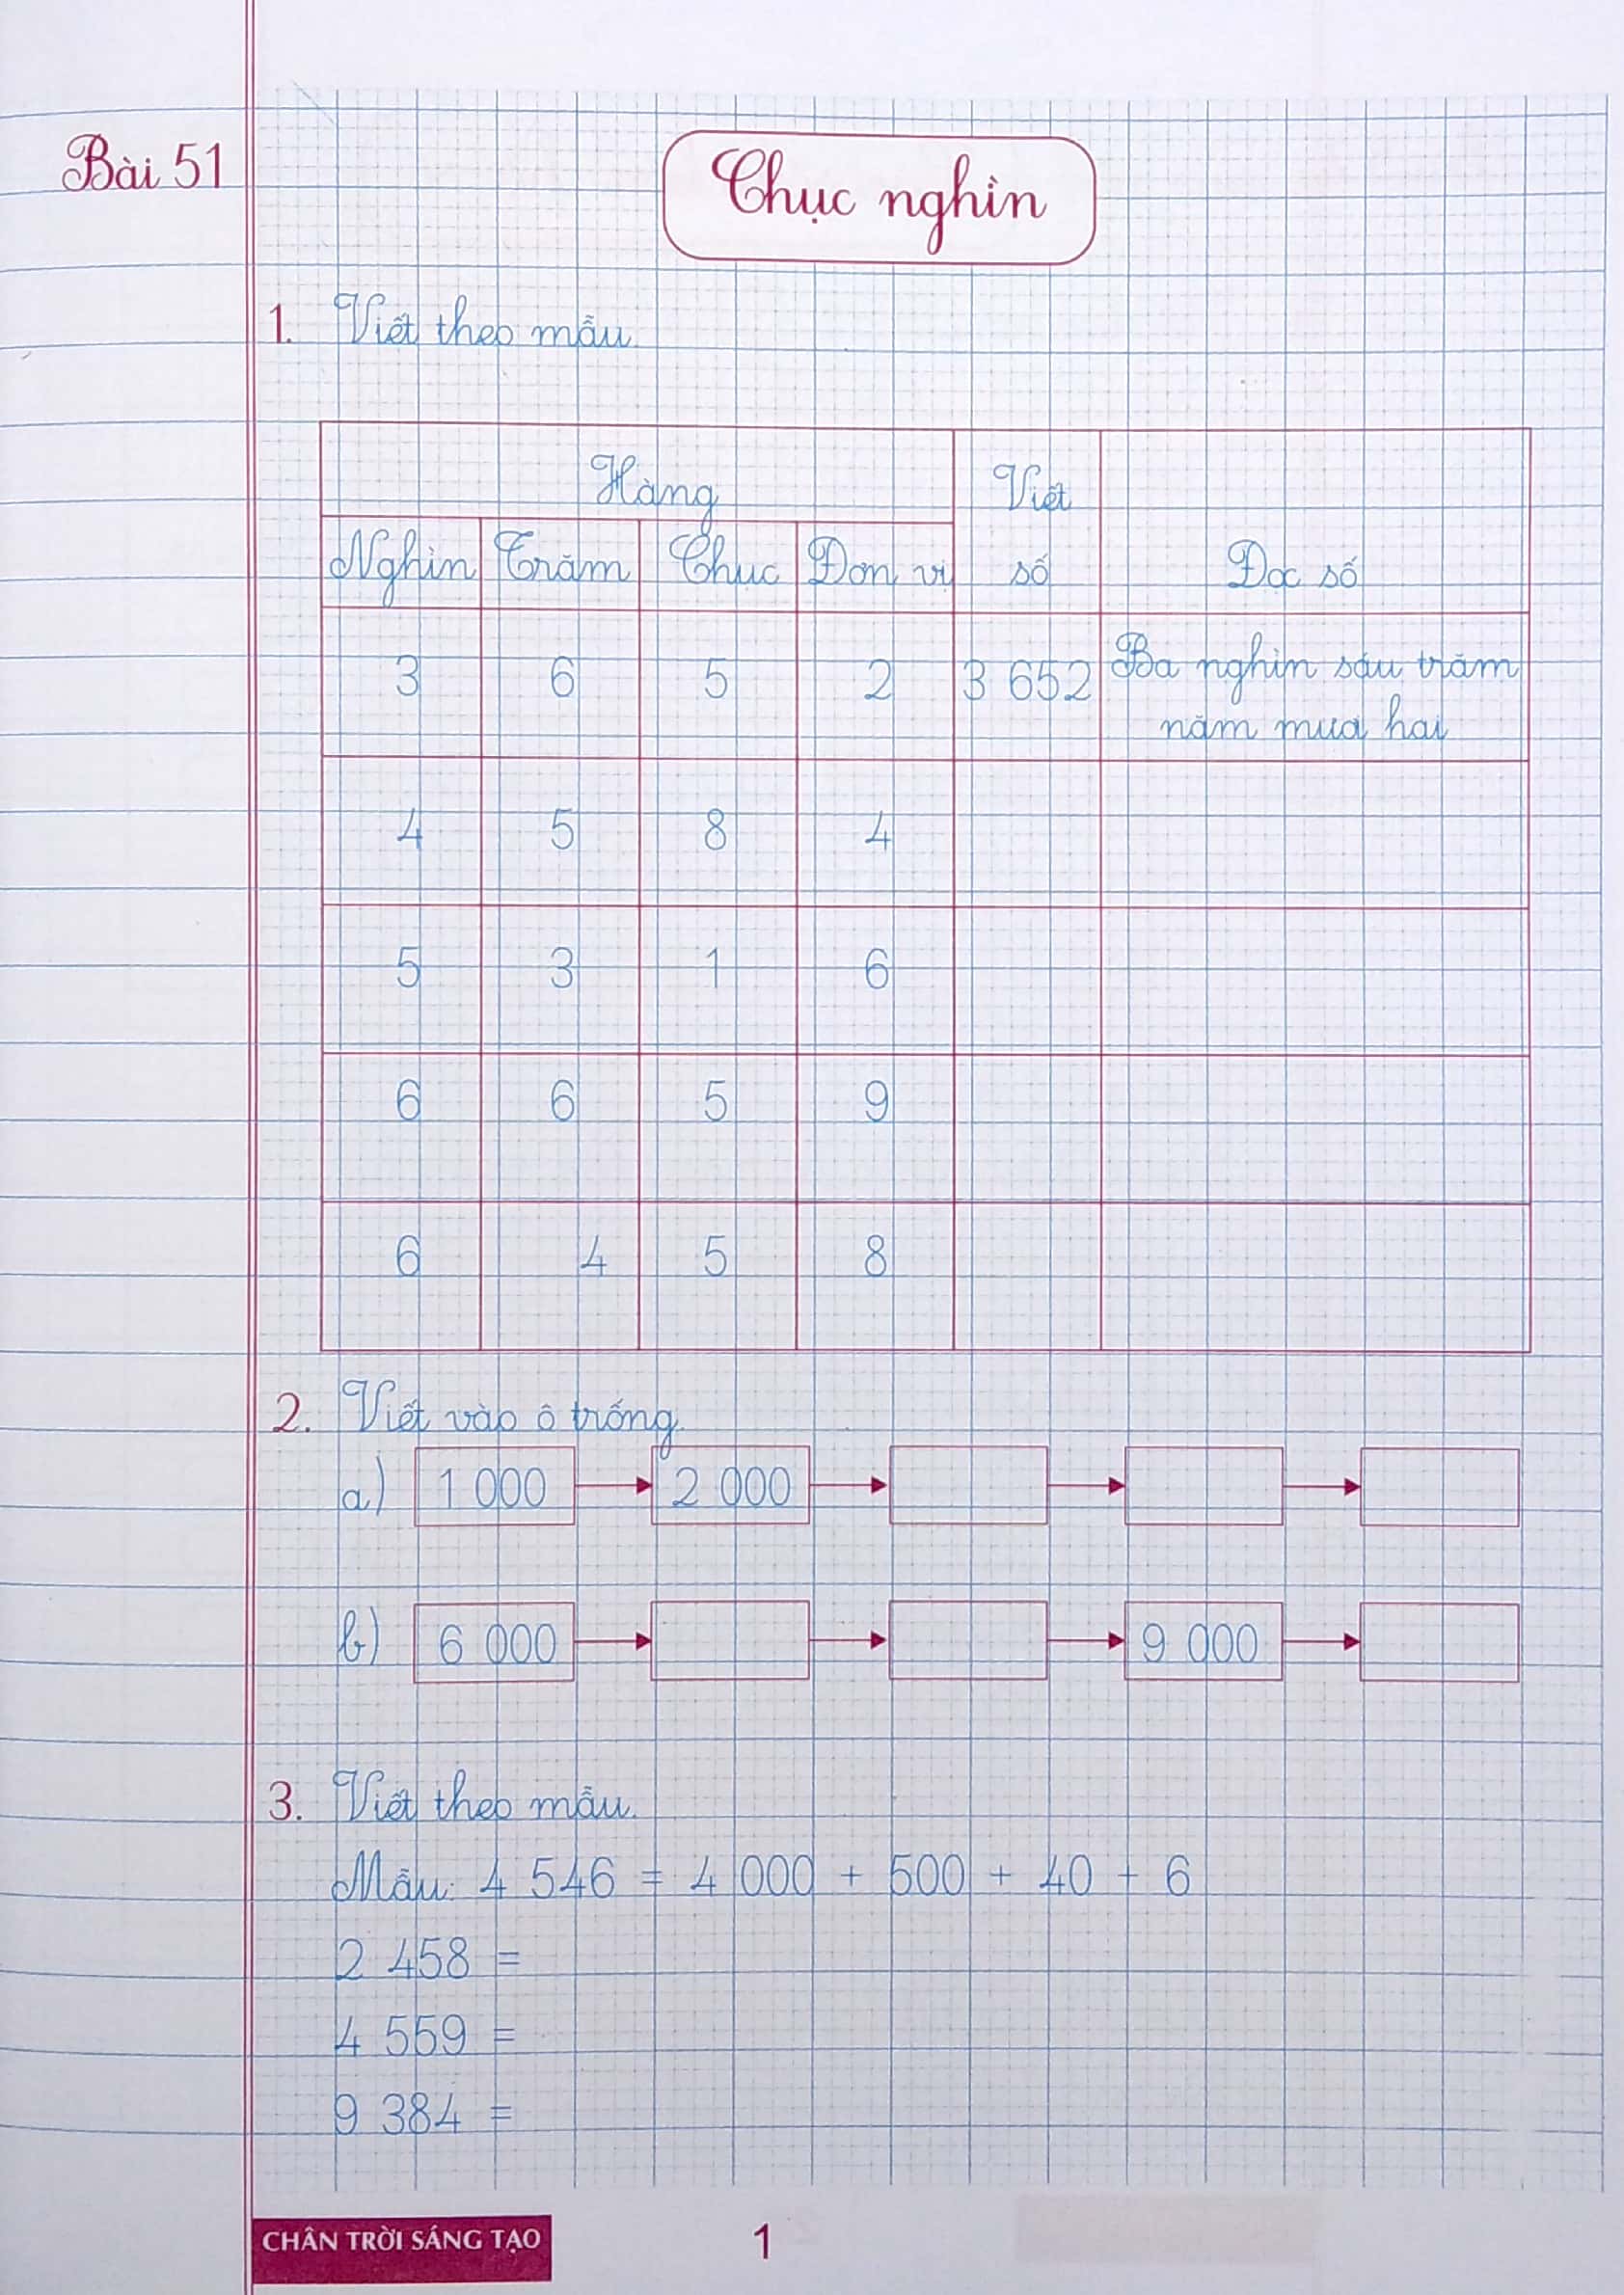 Bài 51
Chục nghìn
1. Viết theo mẫu.
Hàng Viết số Đọc số
Nghìn Trăm Chục Đơn vị
3 6 5 2 3 652 Ba nghìn sáu trăm
năm mươi hai
4 5 8 4
5 3 1 6
6 6 5 9
6 4 5 8
2. Viết vào ô trống.
a) 1 000 2 000
b) 6 000 9 000
3. Viết theo mẫu.
Mẫu: 4 546 = 4 000 + 500 + 40 + 6
2 458 =
4 559 =
9 384 =
CHÂN TRỜI SÁNG TẠO 1